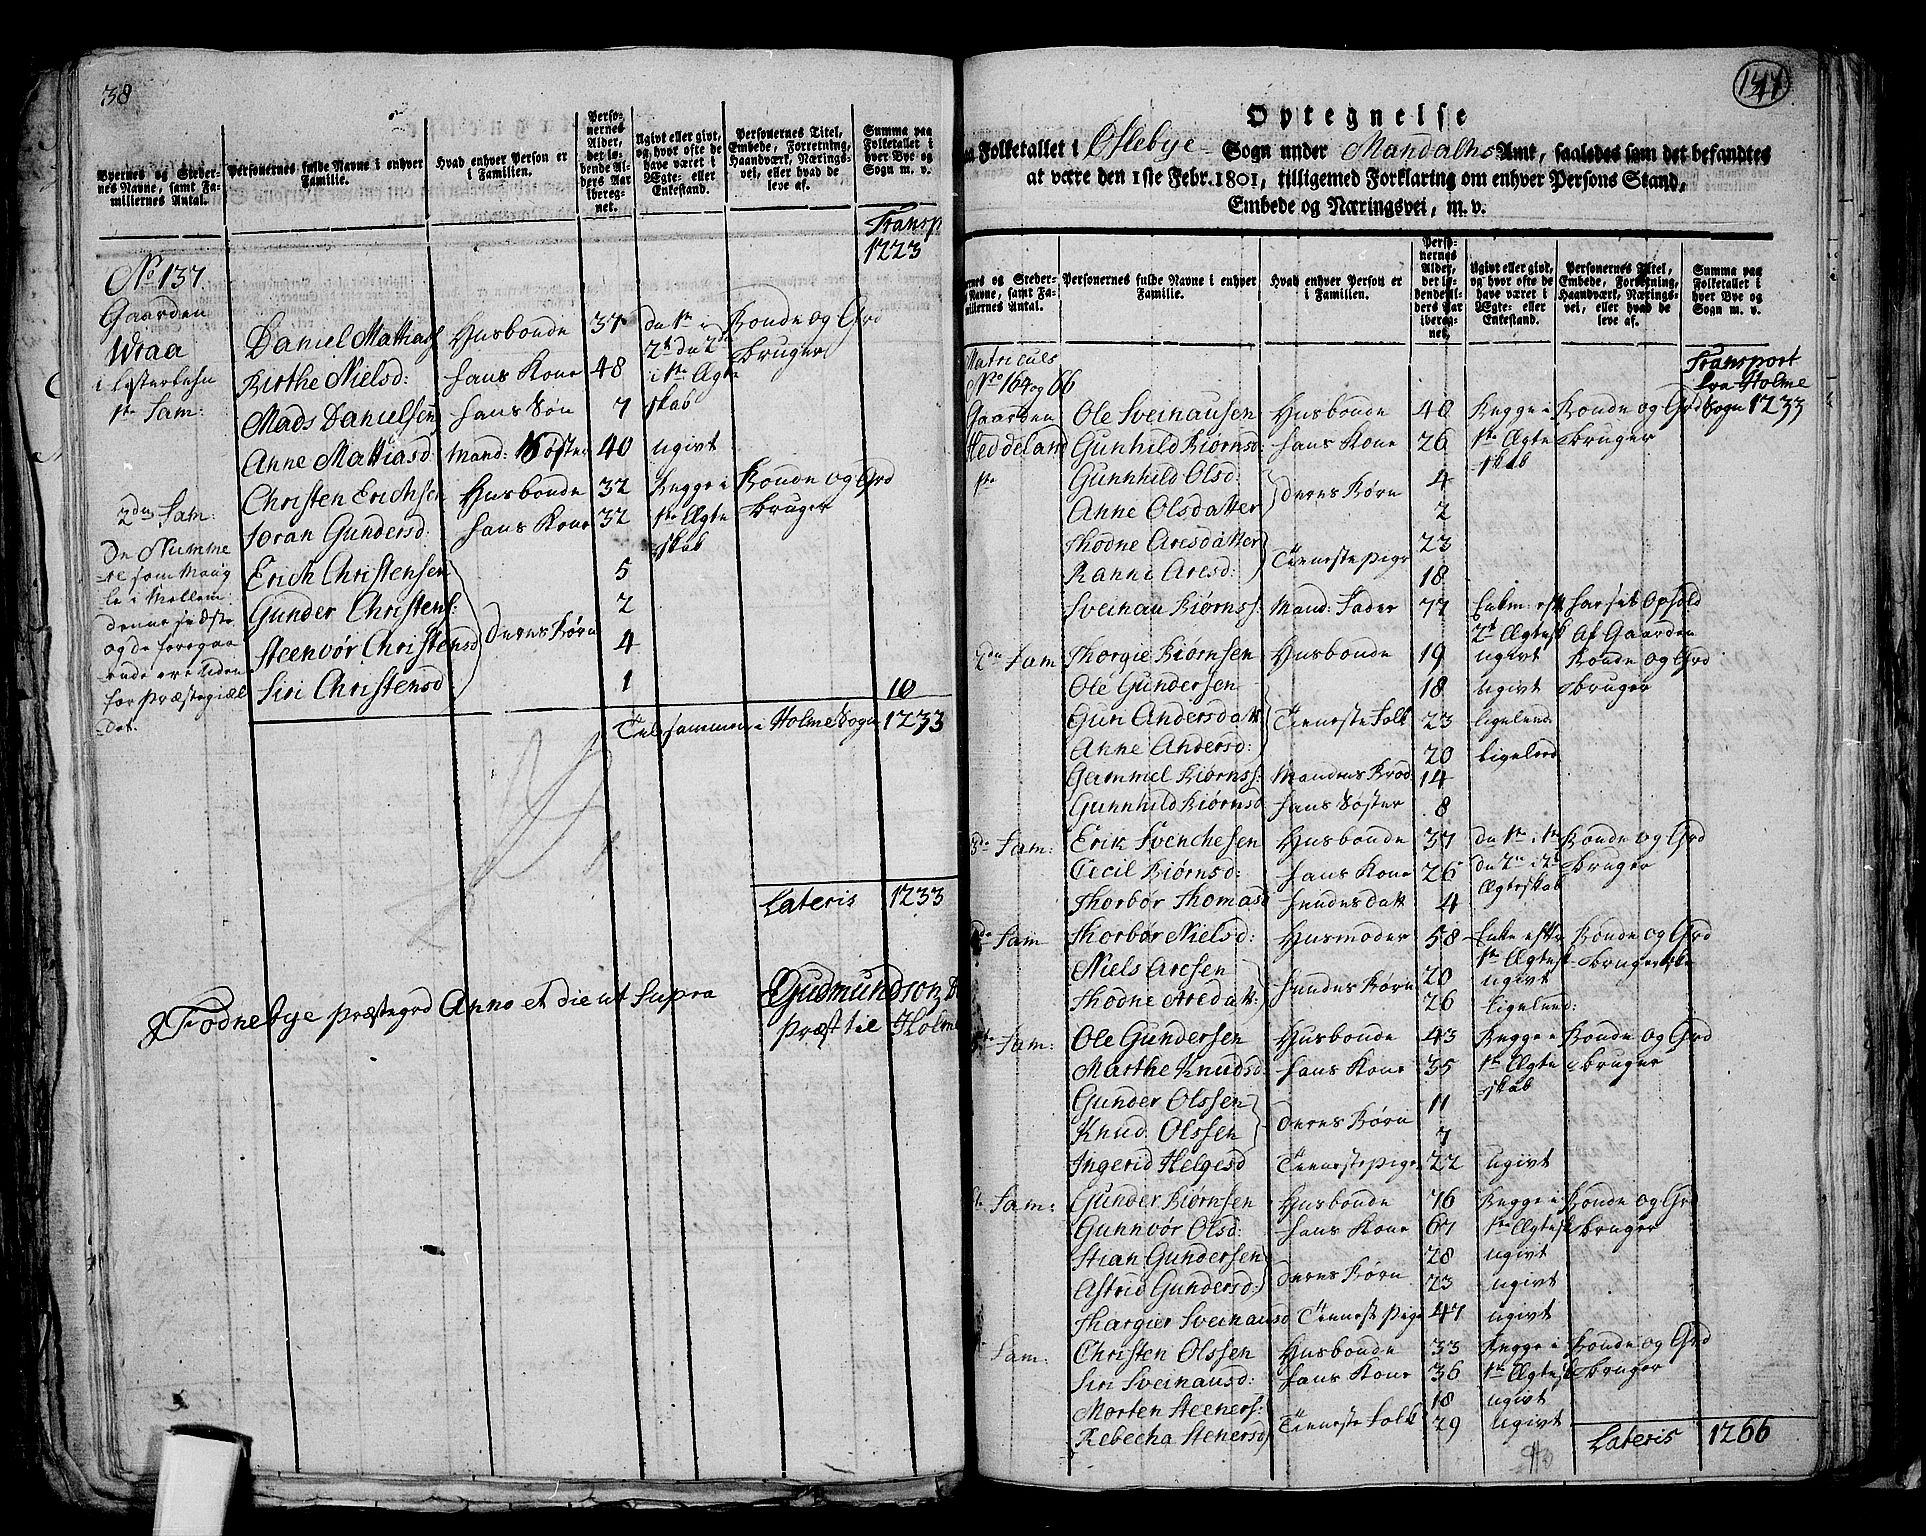 38
Byernes og Stedernes Navne, samt Familiernes Antal.
Personernes fulde Navne i enhver Familie.
Hvad enhver Person er i Familien.
Personernes Alder, det løbende Alders Aar iberegnet.
Ugivt eller givt, og hvor ofte de have været i Ægte- eller Enkestand.
Personernes Titel, Embede, Forretning, Haandværk, Næringsvei, eller hvad de leve af.
Summa paa Folketallet i hver Bye og Sogn m. v.
Transp
1223
No 137.
Gaarden
Wraa
i Lysterlehn
1te Fam:
Daniel Mattias Husbonde 37 du 1te i Bonde og Grd
2t du 2d bruger
Birthe Nielsd: hans Kone 48 i 1te Ægte
skab
Mads Danielsen hans Søn 7
Anne Mattiasd Mand: Søster 40 ugivt
2den Fam:
Christen Erichsen Husbonde 32 Begge i Bonde og Grd
Joran Gundersd: hans Kone 32 1te Ægte bruger
skab
Erich Christensen 5
Gunder Christens: 2
Steenvør Christensd Deres Børn 4
Siri Christensd 1
10
De Numme
re som Mang
le i Mellem
denne sidste
og de foregaa
ende ere Uden
for Præstegiæl
det.
Tilsammen i Holme Sogn 1233
Lateris 1233
Fodnebye Præstegrd Anno et die ut Supra
Gudmundson
Præst til Holme
137
Optegnelse
Folketallet i Øslebye Sogn under Mandahls Amt, saaledes som det befandtes
at være den 1ste Febr. 1801, tilligemed Forklaring om enhver Persons Stand,
Embede og Næringsvei, m. v.
Personernes fulde Navne i enhver Familie.
Hvad enhver Person er i Familien.
Personernes Alder, det løbende Alders Aar iberegnet.
Ugivt eller givt, og hvor ofte de have været i Ægte- eller Enkestand.
Personernes Titel, Embede, Forretning, Haandværk, Næringsvei, eller hvad de leve af.
Summa paa Folketallet i hver Bye og Sogn m. v.
Matriculs
No 164 og 66
Transport
fra Holme
Sogn 1233
Gaarden
Heddeland
1te
Ole Sveinausen Husbonde 40 Begge i Bonde og Grd
Gunhild Biørnsd: hans Kone 26 1te Ægte bruger
skab
Gunnhild Olsd: 4
Anne Olsdatter Deres Børn 2
Thodne Aresdatter 23
Ranni Aresd: Tienestepige 18
Sveinau Biørnss: Mand: Fader 77 Enkm: eft har sit Ophold
2t Ægtesk Af Gaarden
2den Fam Thorgie Biørnsen Husbonde 19 ugivt Bonde og Grd
Ole Gundersen 18 ugivt bruger
Gun Andersdatt Tieneste Folk 23 ligeled
Anne Andersd: 20 ligeled
Gammel Biørnss: Mandens Brod 14
Gunnhild Biørnsd hans Søster 8
3de Fam: Erik Svenchesen Husbonde 37 du 1te i 1te Bonde og Grd
Cecil Biørnsd: hans Kone 26 du 2de i 2t bruger
Ægteskab
Thorbør Thomasd hendes datt 4
Fam Thorbør Nielsd: Husmoder 58 Enke efter Bonde og Grd
1te Ægtesk
Niels Aresen 20 ugivt
Thodne Aredatt: hendes Børn 26 ligeled:
Fam: Ole Gundersen Husbonde 43 Begge i Bonde og Grd
Marthe Knudsd: hans Kone 35 1te Ægte bruger
skab
Gunder Olssen 11
Knud Olssen Deres Børn 7
Ingerid Helgesd Tienestepige 22 ugivt
Fam: Gunder Biørnsen Husbonde 76 Begge i Bonde og Grd
Gunnvør Olsd: hans Kone 67 1te Ægtesk bruger
Stian Gundersen 28 ugivt
Astrid Gundersd: Deres Børn 23 ugivt
Thargier Sveinausd Tienest Pige 47 ugivt
Fam: Christen Olssen Husbonde 33 Begge i Bonde og Grd
Siri Sveinausd: hans Kone 36 1te Ægtesk bruger
Morten Steeners: 18 ugivt
Rebecha Stenersd Tieneste Folk 29 ugivt
Lateris 1266